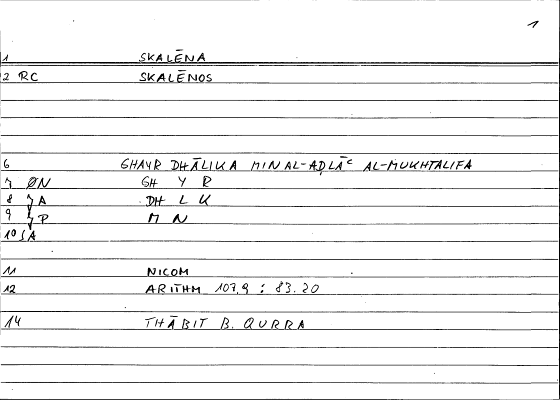 1
1 SKALĒNA
2 RC SKALĒNOS
6 GHAYR DHĀLIKA MIN AL-AḌLĀʿ AL-MUKHTALIFA
7 ØN GH Y R
8 A DH L K
9 P M N
10 A
11 NICOM
12 ARITHM 107,9 : 83.20
14 THĀBIT B. QURRA